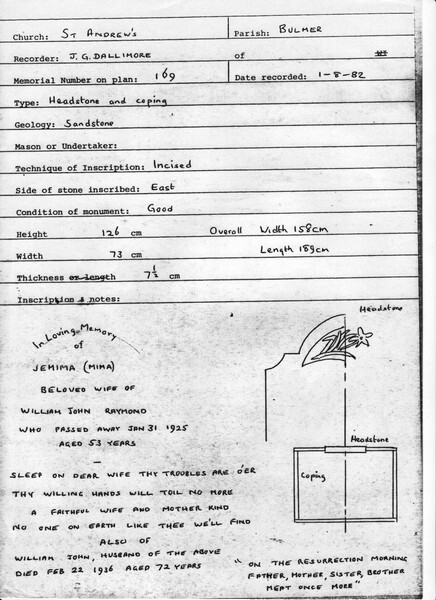 Church: St Andrew's
Parish: Bulmer
Recorder: J.G. Dallimore
of
Memorial Number on plan: 169
Date recorded: 1-8-82
Type: Headstone and coping
Geology: Sandstone
Mason or Undertaker:
Technique of Inscription: Incised
Side of stone inscribed: East
Condition of monument: Good
Height 126 cm Overall Width 158cm
Width 73 cm Length 189cm
Thickness or length 7½ cm
Inscription & notes:
Headstone
In Loving Memory
of
JEMIMA (MIMA)
BELOVED WIFE OF
WILLIAM JOHN RAYMOND
WHO PASSED AWAY JAN 31 1925
AGED 53 YEARS
Headstone
Coping
—
SLEEP ON DEAR WIFE THY TROUBLES ARE O'ER
THY WILLING HANDS WILL TOIL NO MORE
A FAITHFUL WIFE AND MOTHER KIND
NO ONE ON EARTH LIKE THEE WE'LL FIND
ALSO OF
WILLIAM JOHN, HUSBAND OF THE ABOVE
DIED FEB 22 1936 AGED 72 YEARS
"ON THE RESURRECTION MORNING
FATHER, MOTHER, SISTER, BROTHER
MEAT ONCE MORE"